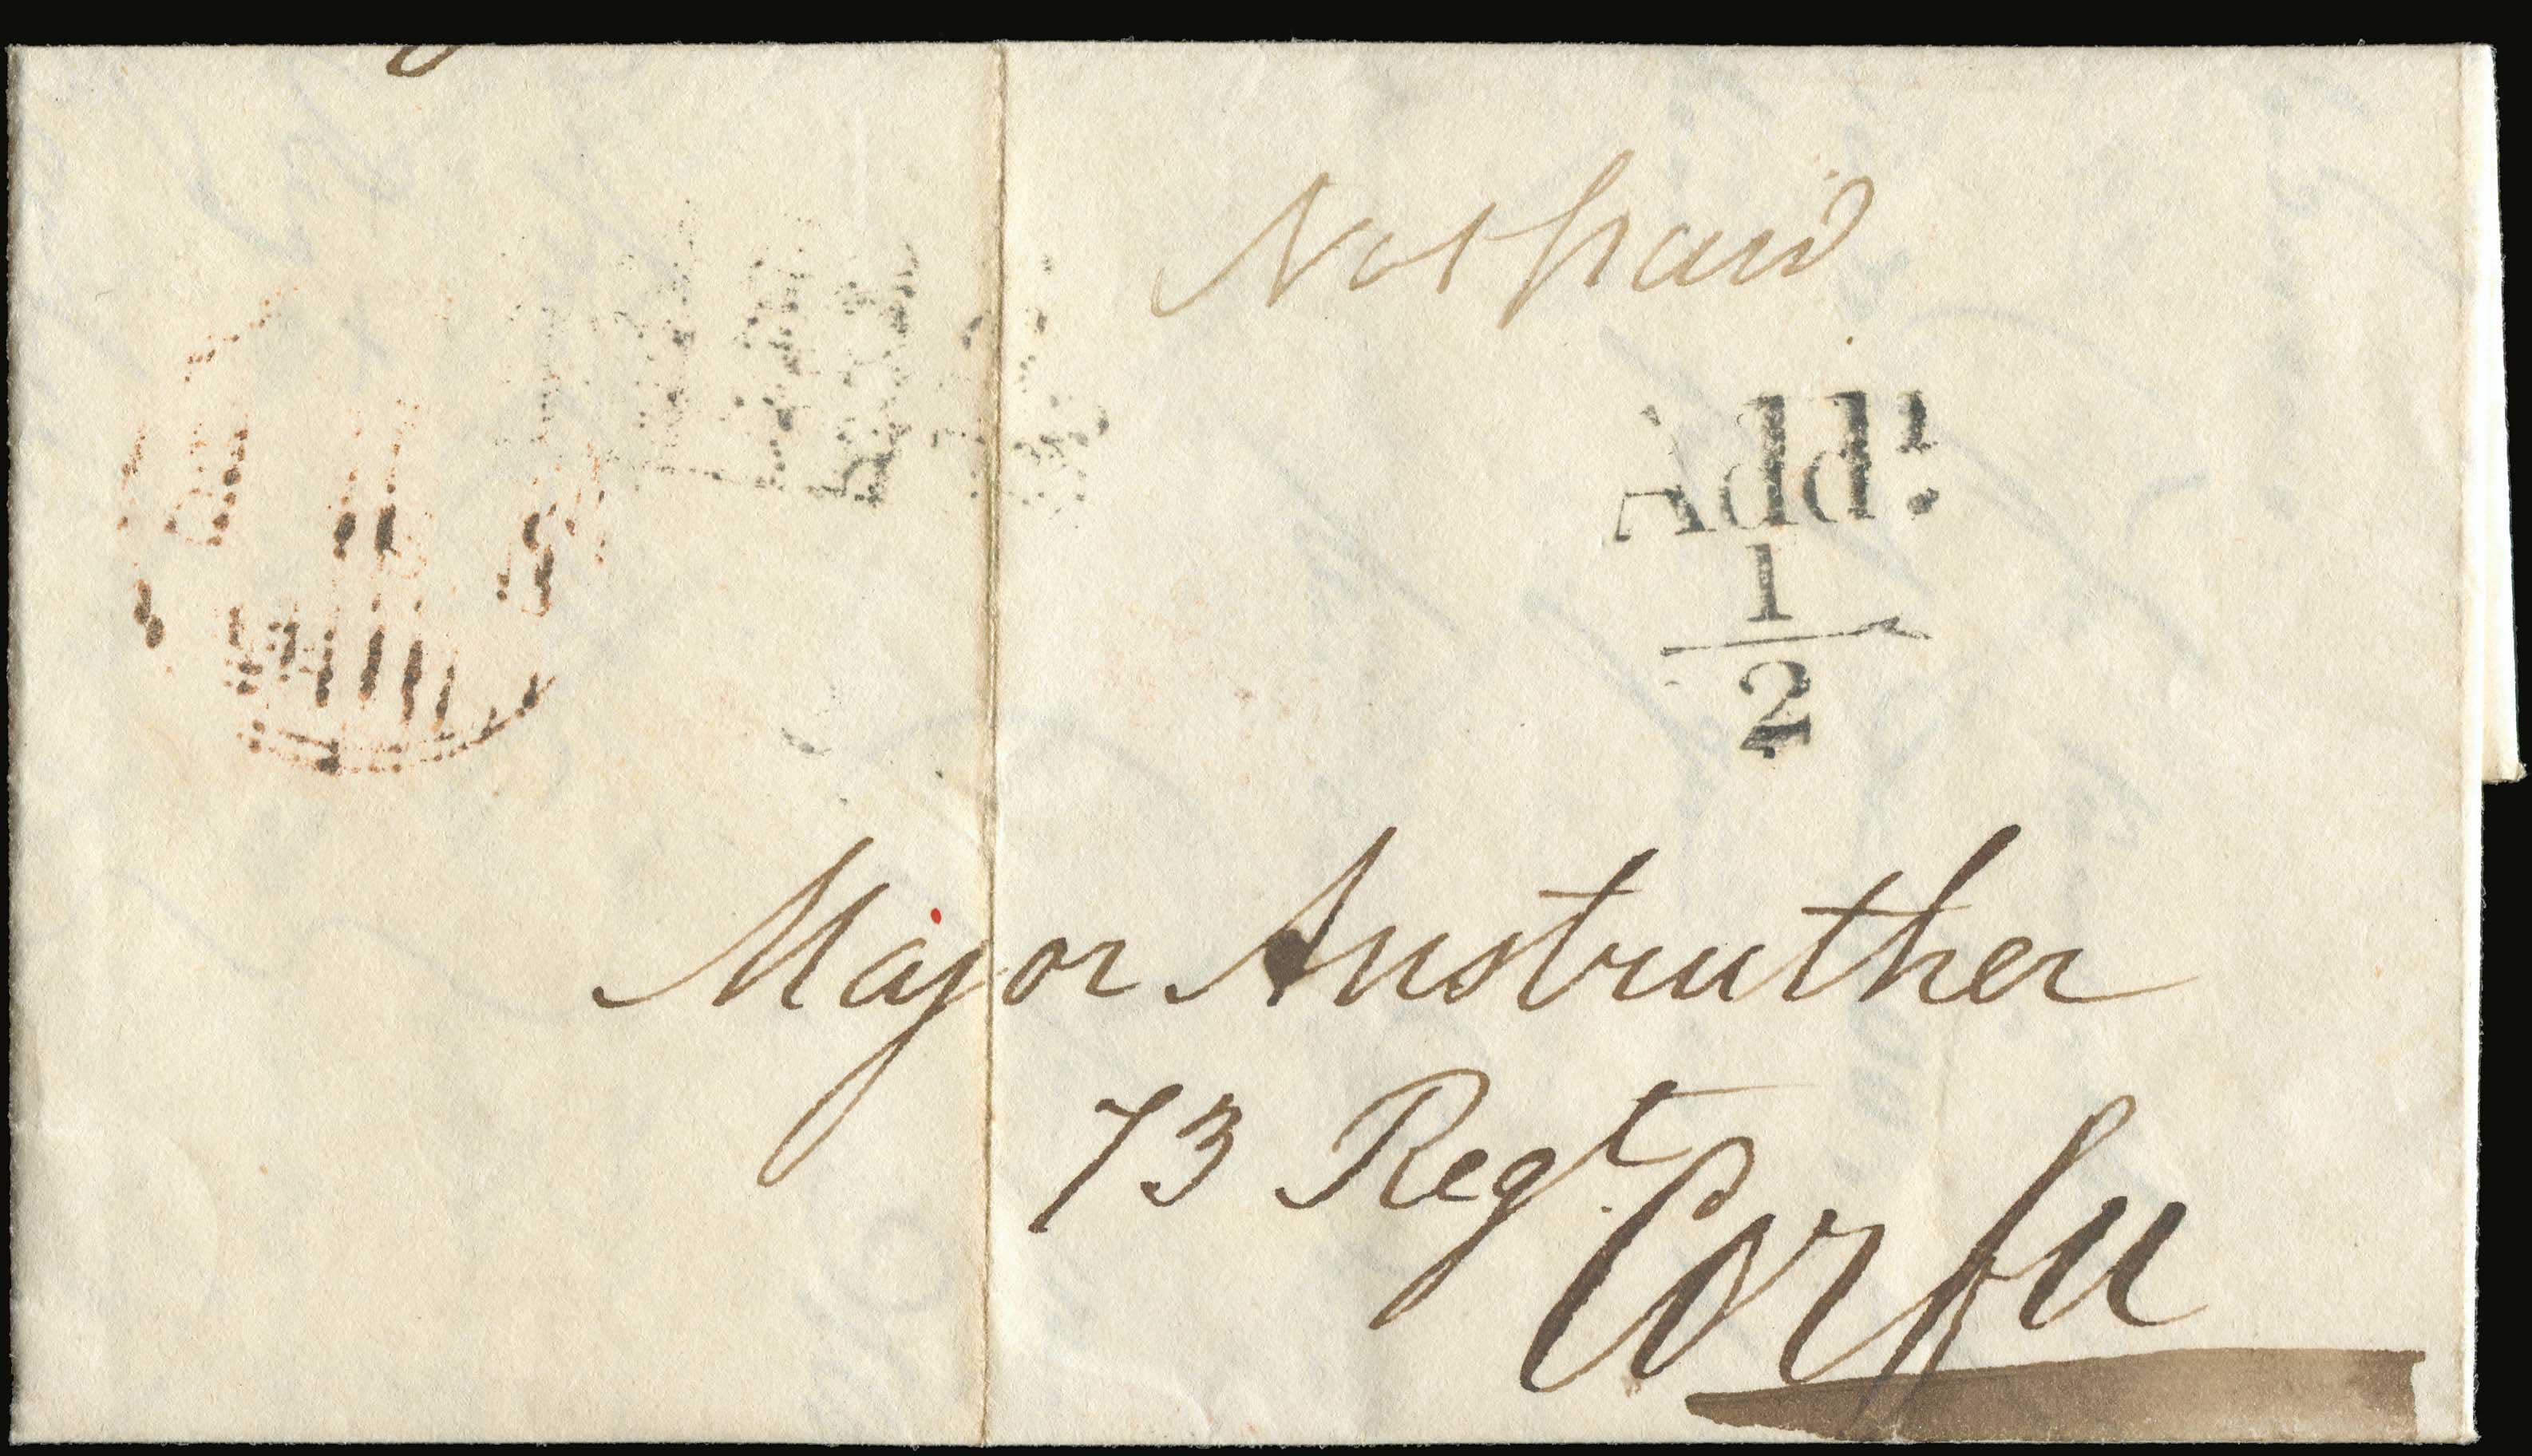 Not paid
Addl.
1
2
Major Anstruther
73 Regt
Corfu